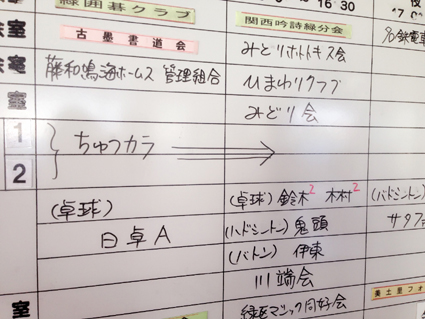 緑囲碁クラブ
関西吟詩緑分会
16:30
室
古墨書道会
みどりホトトギス会
室
藤和鳴海ホームズ 管理組合
ひまわりクラブ
室
みどり会
1
ちゅうカラ
2
(卓球)
(卓球) 鈴木2 木村2
日卓A
(バドミントン) 鬼頭
(バトン) 伊東
川端会
室
緑区マジック同好会